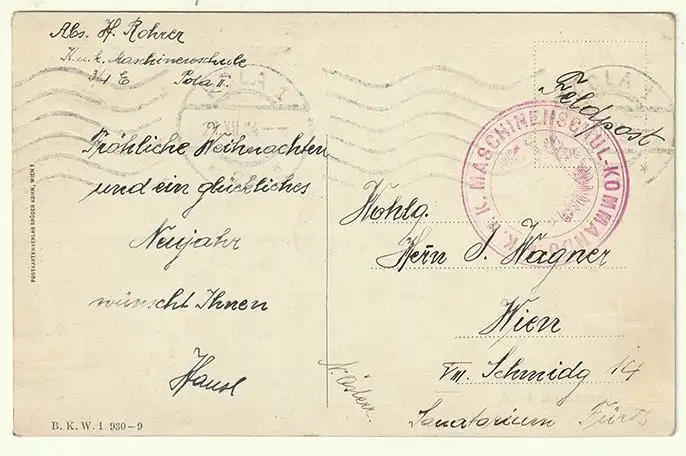 Abs. H. Rohrer
K.u.k. Maschinenschule
3/4 E Pola II.
POLA 1
Feldpost
K. u. K. MASCHINENSCHUL-KOMMANDO
Fröhliche Weihnachten
und ein glückliches
Neujahr
wünscht Ihnen
Hansl
Wohlg.
Herrn S. Wagner
Wien
VIII. Schmidg 14
Sanatorium Fürth
N. Österr.
POSTKARTENVERLAG BRÜDER KOHN, WIEN I
B. K. W. I. 930-9